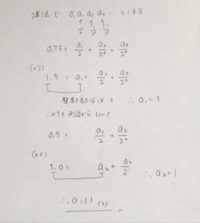 2進法で a₁ a₂ a₃ … とする
0.75 = a₁/2 + a₂/2² + a₃/2³
(×2)
1.5 = a₁ + a₂/2 + a₃/2²
整数部分は1 ∴ a₁ = 1
0.5 = a₂/2 + a₃/2²
(×2)
1.0 = a₂ + a₃/2
∴ a₂ = 1
∴ 0.11 (2)